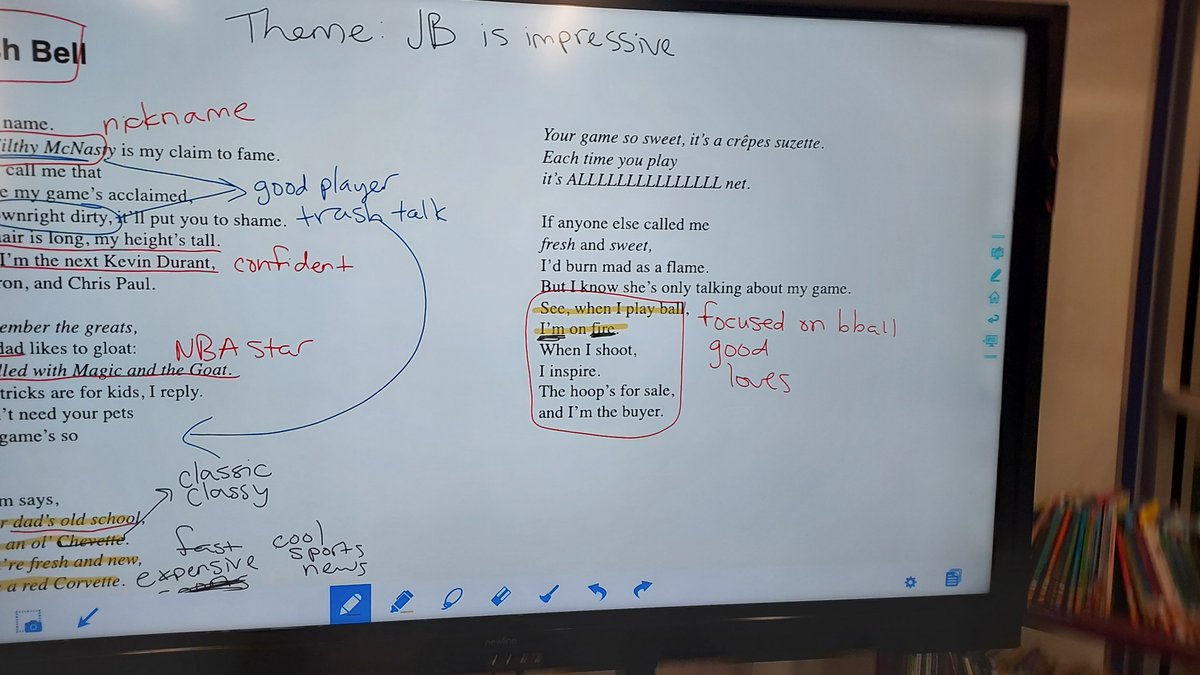 Theme: JB is impressive
h Bell
name.
nickname
ilthy McNasty is my claim to fame.
call me that
e my game's acclaimed,
good player
ownright dirty, it'll put you to shame.
trash talk
air is long, my height's tall.
I'm the next Kevin Durant,
confident
ron, and Chris Paul.
ember the greats,
dad likes to gloat:
NBA star
lled with Magic and the Goat.
tricks are for kids, I reply.
't need your pets
game's so
classic
classy
m says,
r dad's old school,
an ol' Chevette.
fast
're fresh and new,
expensive
a red Corvette.
cool
sports
news
Your game so sweet, it's a crêpes suzette.
Each time you play
it's ALLLLLLLLLLLLLLL net.
If anyone else called me
fresh and sweet,
I'd burn mad as a flame.
But I know she's only talking about my game.
See, when I play ball,
I'm on fire.
When I shoot,
I inspire.
The hoop's for sale,
and I'm the buyer.
focused on bball
good
loves
newline